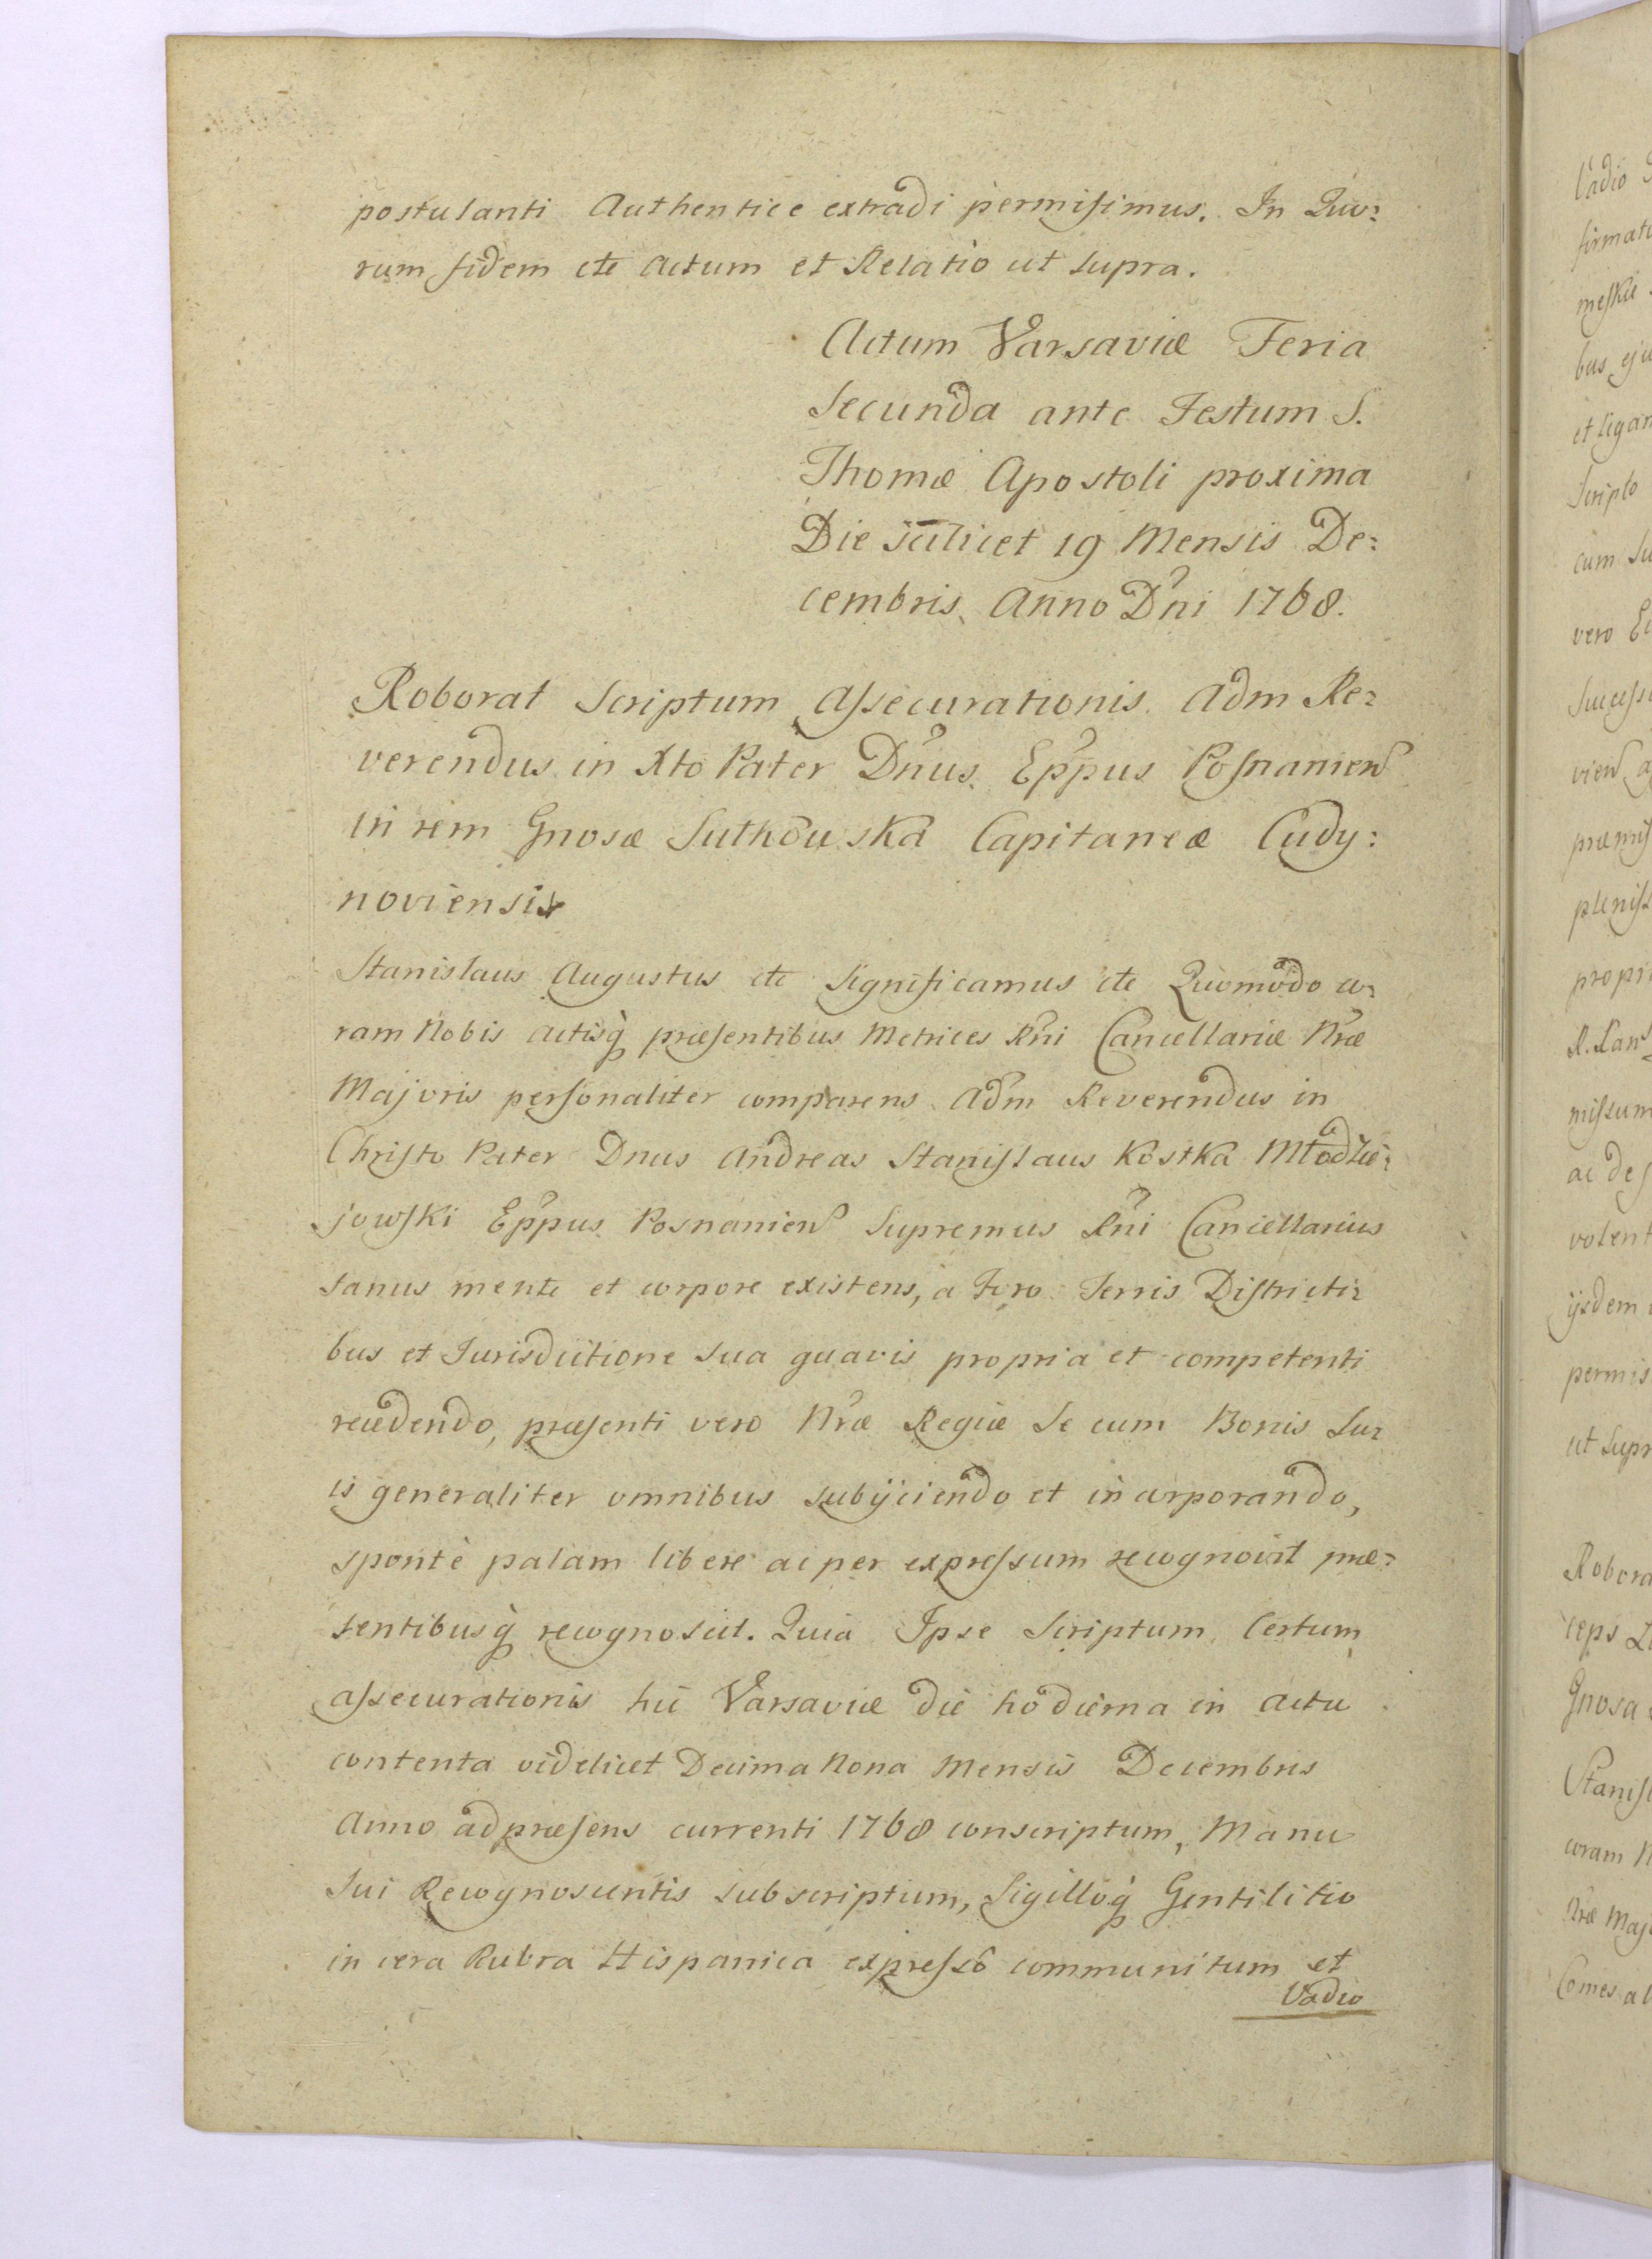 postulanti Authentice extradi permisimus. In Quo:
rum fidem etc Actum et Relatio ut supra.
Actum Varsaviæ Feria
Secunda ante Festum S.
Thomæ Apostoli proxima
Die scilicet 19 Mensis De:
cembris Anno Dni 1768.
Roborat Scriptum Assecurationis Adm Re:
verendus in Xto Pater Dnus Eppus Posnanien
in rem Gnosæ Suthowska Capitaneæ Cudy:
noviensis
Stanislaus Augustus etc Significamus etc Quomodo co:
ram Nobis Actisq præsentibus Metrices Rni Cancellariæ Nræ
Majoris personaliter comparens Adm Reverendus in
Christo Pater Dnus Andreas Stanislaus Kostka Młodzie:
jowski Eppus Posnanien Supremus Rni Cancellarius
sanus mente et corpore existens, a Foro Terris Districti:
bus et Jurisdictione sua quavis propria et competenti
recedendo, præsenti vero Nræ Regiæ Se cum Bonis Su:
is generaliter omnibus subijciendo et incorporando,
sponte palam libere ac per expressum recognovit præ:
sentibusq recognoscit. Quia Ipse Scriptum Certum
assecurationis hic Varsaviæ die hodierna in actu
contenta videlicet Decima Nona Mensis Decembris
Anno ad præsens currenti 1768 conscriptum, Manu
sui Recognoscentis subscriptum, Sigilloq Gentilitio
in cera Rubra Hispanica expresso communitum et
Vadio